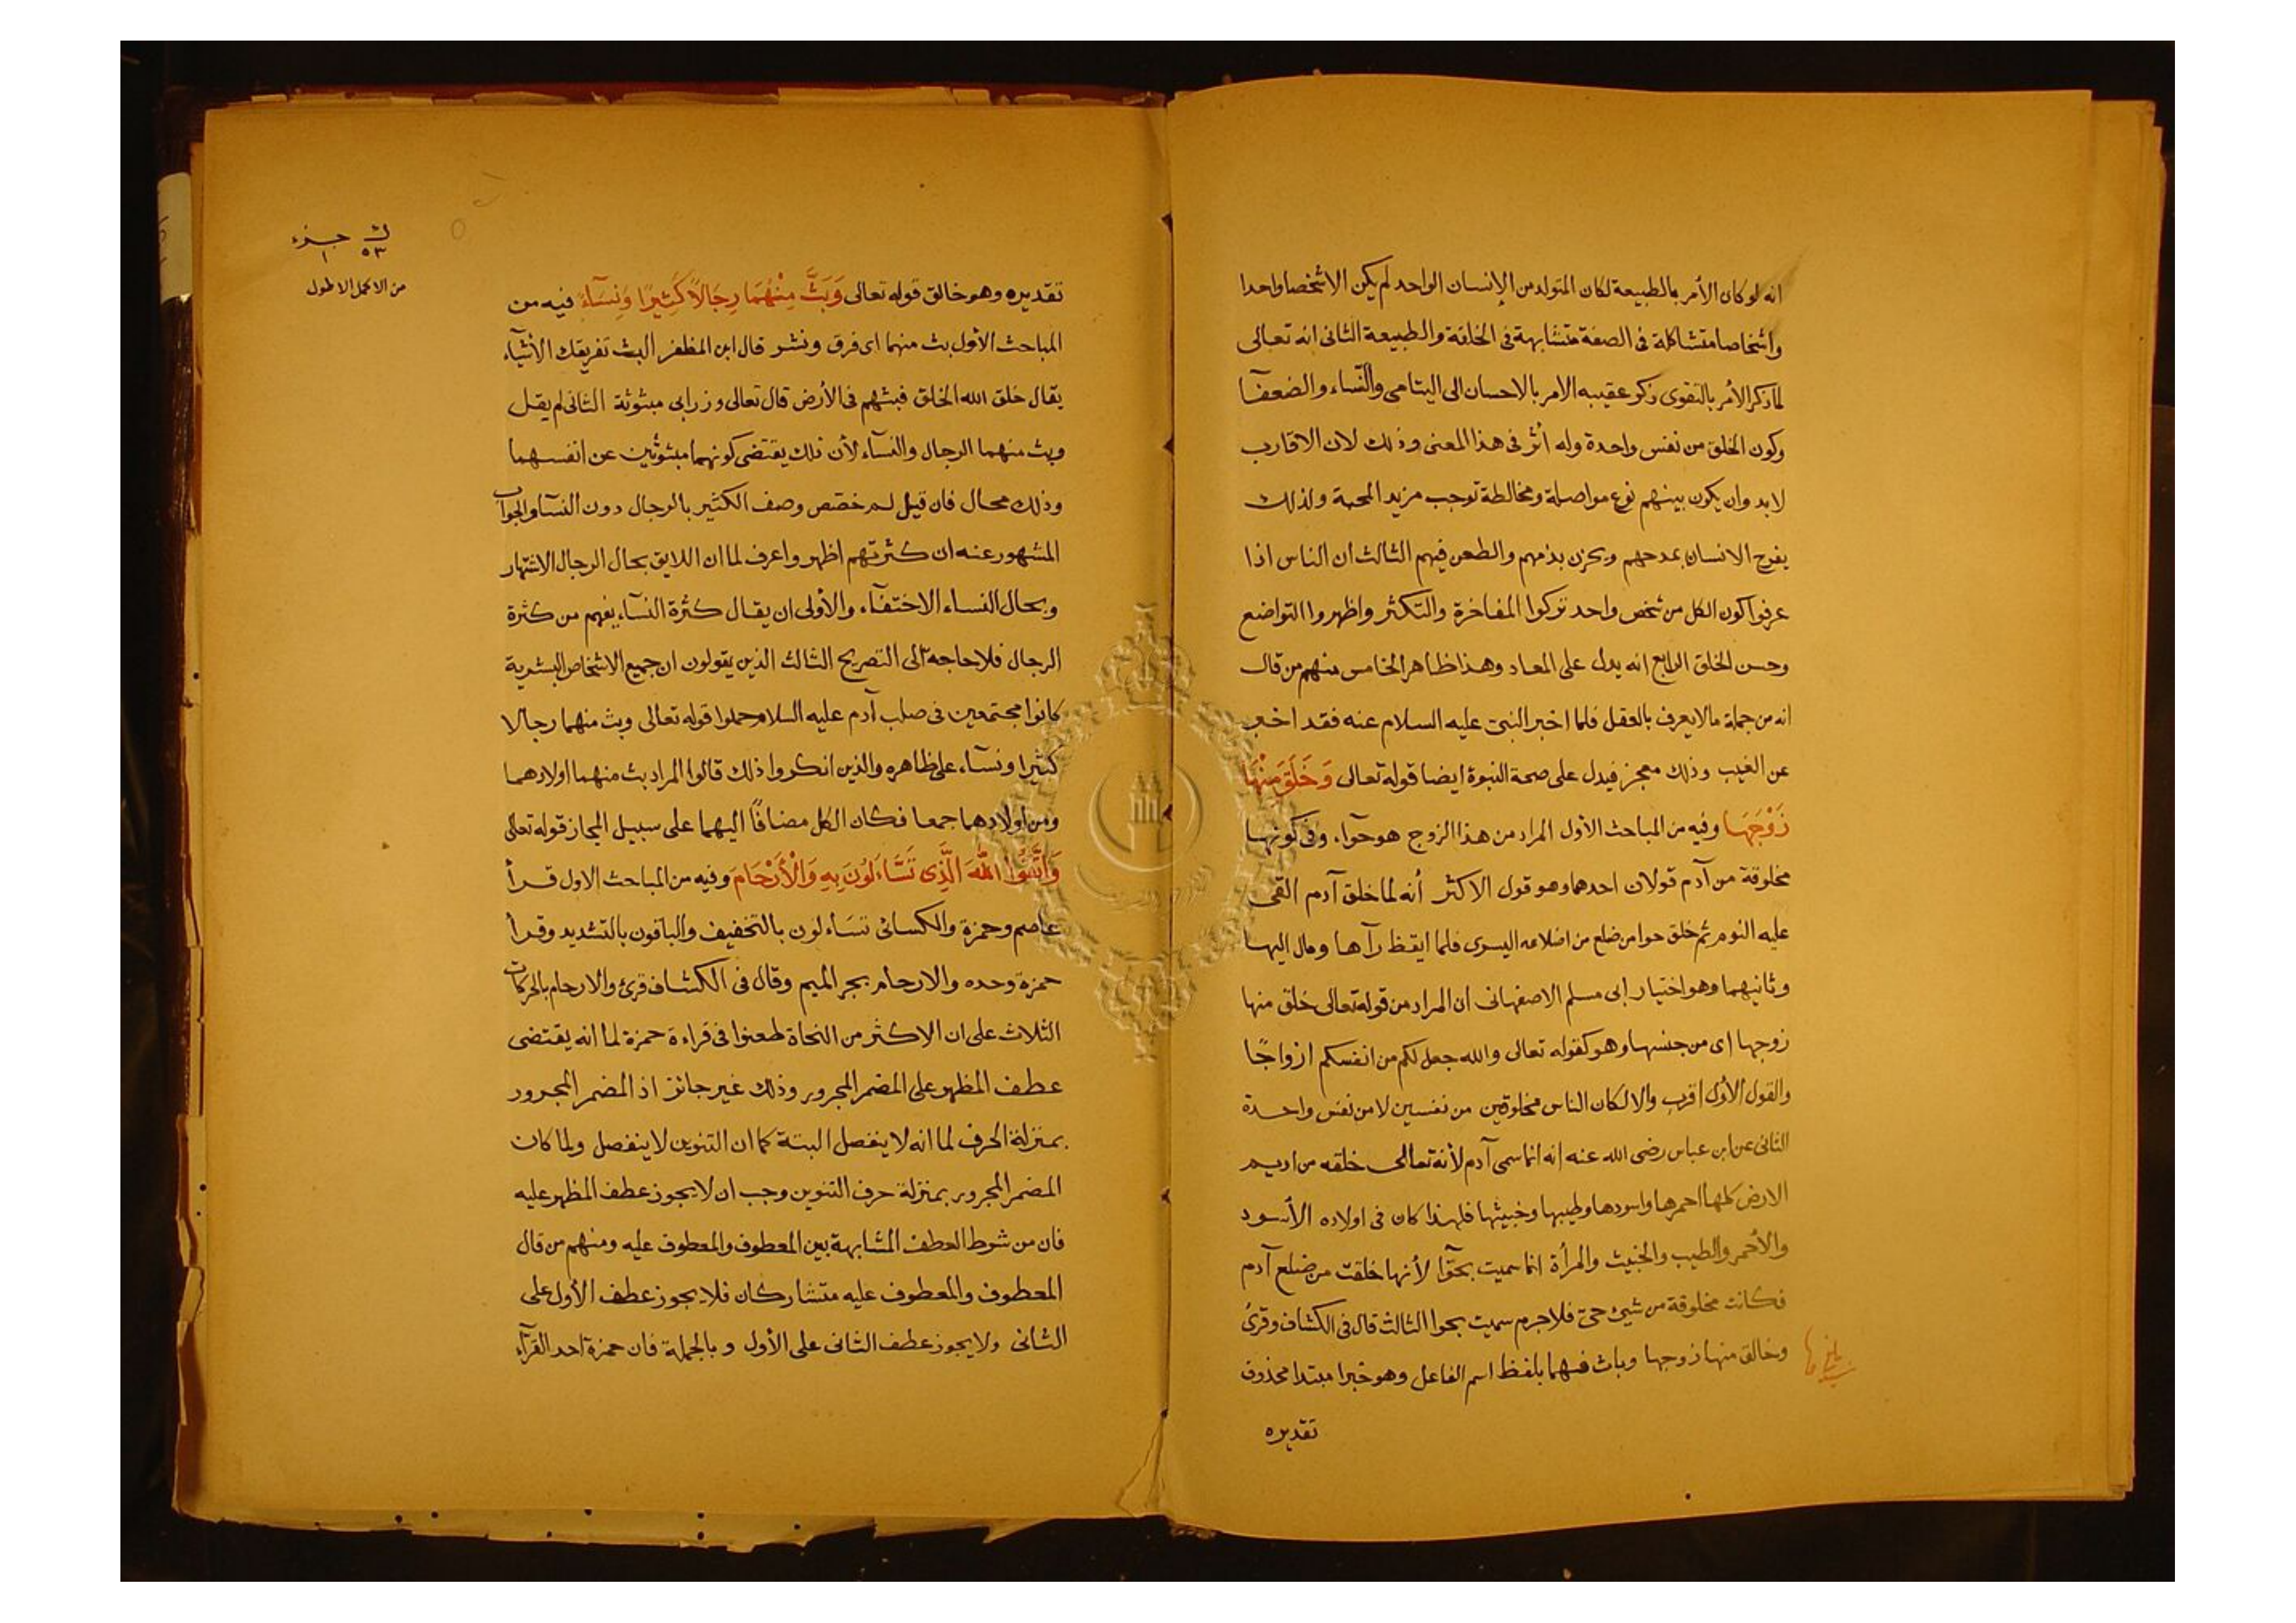 انه لو كان الأمر بالطبيعة لكان المتولد من الإنسان الواحد لم يكن الا شخصا واحدا
واشخاصا متشاكلة فى الصفة متشابهة فى الخلقة والطبيعة الثانى انه تعالى
لما ذكر الأمر بالتقوى ذكر عقيبه الامر بالاحسان الى اليتامى والنساء والضعفآ
وكون الخلق من نفس واحدة وله أثر فى هذا المعنى وذلك لان الاقارب
لابد وان يكون بينهم نوع مواصلة ومخالطة توجب مزيد المحبة ولذلك
يفرح الانسان بمدحهم ويحزن بذمهم والطعن فيهم الثالث ان الناس اذا
عرفوا كون الكل من شخص واحد تركوا المفاخرة والتكثر واظهروا التواضع
وحسن الخلق الرابع انه يدل على المعاد وهذا ظاهر الخامس منهم من قال
انه من جملة مالا يعرف بالعقل فلما اخبر النبى عليه السلام عنه فقد اخبر
عن الغيب وذلك معجز فيدل على صحة النبوة ايضا قوله تعالى وَخَلَقَ مِنْهَا
زَوْجَهَا وفيه من المباحث الأول المراد من هذا الزوج هو حوآء وفى كونها
مخلوقة من آدم قولان احدهما وهو قول الاكثر أنه لما خلق آدم القى
عليه النوم ثم خلق حوا من ضلع من اضلاعه اليسرى فلما ايقظ رآها ومال اليها
وثانيهما وهو اختيار ابى مسلم الاصفهانى ان المراد من قوله تعالى خلق منها
زوجها اى من جنسها وهو كقوله تعالى والله جعل لكم من انفسكم ازواجًا
والقول الأول اقرب والا لكان الناس مخلوقين من نفسين لا من نفس واحدة
الثانى عن ابن عباس رضى الله عنه انه انما سمى آدم لأنه تعالى خلقه من اديم
الارض كلها احمرها واسودها وطيبها وخبيثها فلهذا كان فى اولاده الأسود
والأحمر والطيب والخبيث والمرأة انما سميت بحوّآ لأنها خلقت من ضلع آدم
فكانت مخلوقة من شيئ حىّ فلا جرم سميت بحوا الثالث قال فى الكشاف وقرئ
وخالق منها زوجها وباث فيهما بلفظ اسم الفاعل وهو خبر مبتدا محذوف
تقديره
ك ٥٣ جزء ١
من الاكمل الاطول
تقديره وهو خالق قوله تعالى وَبَثَّ مِنْهُمَا رِجَالًا كَثِيرًا وَنِسَآءً فيه من
المباحث الأول بث منهما اى فرق ونشر قال ابن المظفر البث تفريقك الأشيآء
يقال خلق الله الخلق فبثهم فى الأرض قال تعالى وزرابى مبثوثة الثانى لم يقل
وبث منهما الرجال والنسآء لأن ذلك يقتضى كونهما مبثوثين عن انفسهما
وذلك محال فان قيل لم خصّص وصف الكثير بالرجال دون النسآ والجواب
المشهور عنه ان كثرتهم اظهر واعرف لما ان اللايق بحال الرجال الاشتهار
وبحال النساء الاختفآء والأولى ان يقال كثرة النسآء يفهم من كثرة
الرجال فلا حاجه الى التصريح الثالث الذين يقولون ان جميع الاشخاص البشرية
كانوا مجتمعين فى صلب آدم عليه السلام حملوا قوله تعالى وبث منهما رجالا
كثيرا ونسآء على ظاهره والذين انكروا ذلك قالوا المراد بث منهما اولادهما
ومن اولادهما جمعا فكان الكل مضافًا اليهما على سبيل المجاز قوله تعالى
وَاتَّقُوا اللّٰهَ الَّذِى تَسَّاءَلُونَ بِهِ وَالْأَرْحَامَ وفيه من المباحث الاول قرأ
عاصم وحمزة والكسائى تسَاءلون بالتخفيف والباقون بالتشديد وقرأ
حمزة وحده والارحام بجر الميم وقال فى الكشاف قرئ والارحام بالحركات
الثلاث على ان الاكثر من النحاة طعنوا فى قراءة حمزة لما انه يقتضى
عطف المظهر على المضمر المجرور وذلك غير جائز اذ المضمر المجرور
بمنزلة الحرف لما انه لا ينفصل البتة كما ان التنوين لا ينفصل ولما كان
المضمر المجرور بمنزلة حرف التنوين وجب ان لا يجوز عطف المظهر عليه
فان من شرط العطف المشابهة بين المعطوف والمعطوف عليه ومنهم من قال
المعطوف والمعطوف عليه متشاركان فلا يجوز عطف الأول على
الثانى ولا يجوز عطف الثانى على الأول وبالجملة فان حمزة احد القرآء